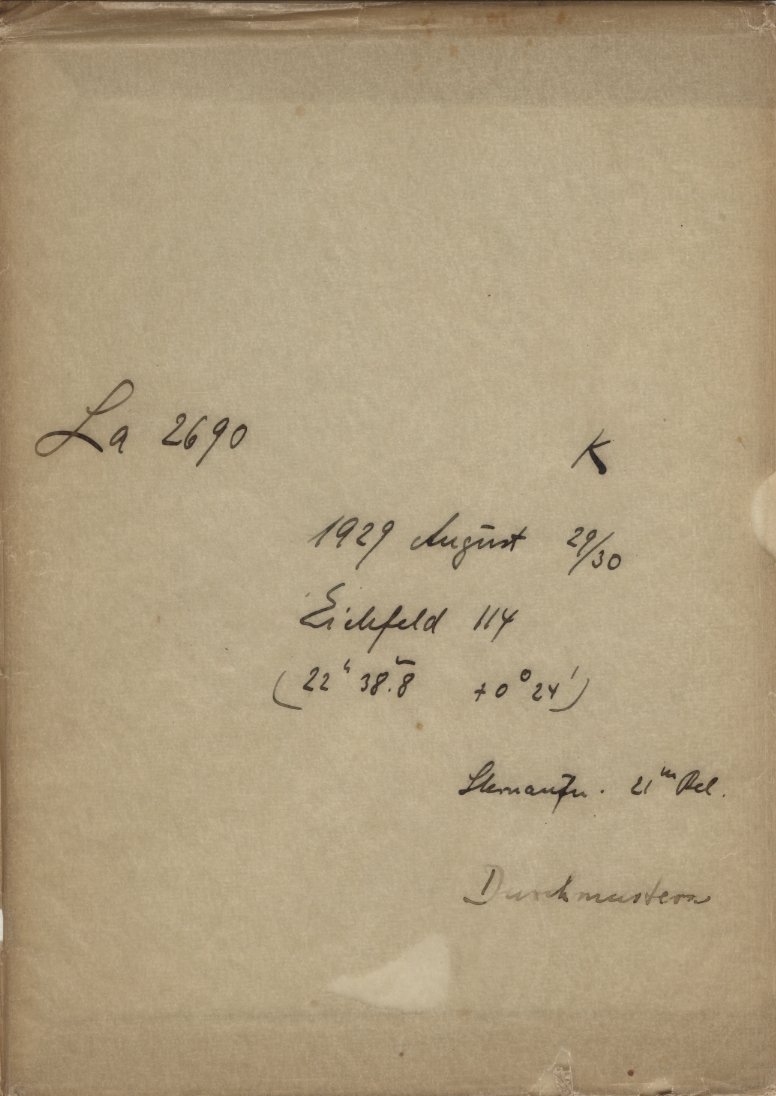 La 2690 K
1929 August 29/30
Eichfeld 114
(22ʰ 38.ᵐ8 +0° 24')
Sternaufn. 21ᵐ Bel.
Durchmustern